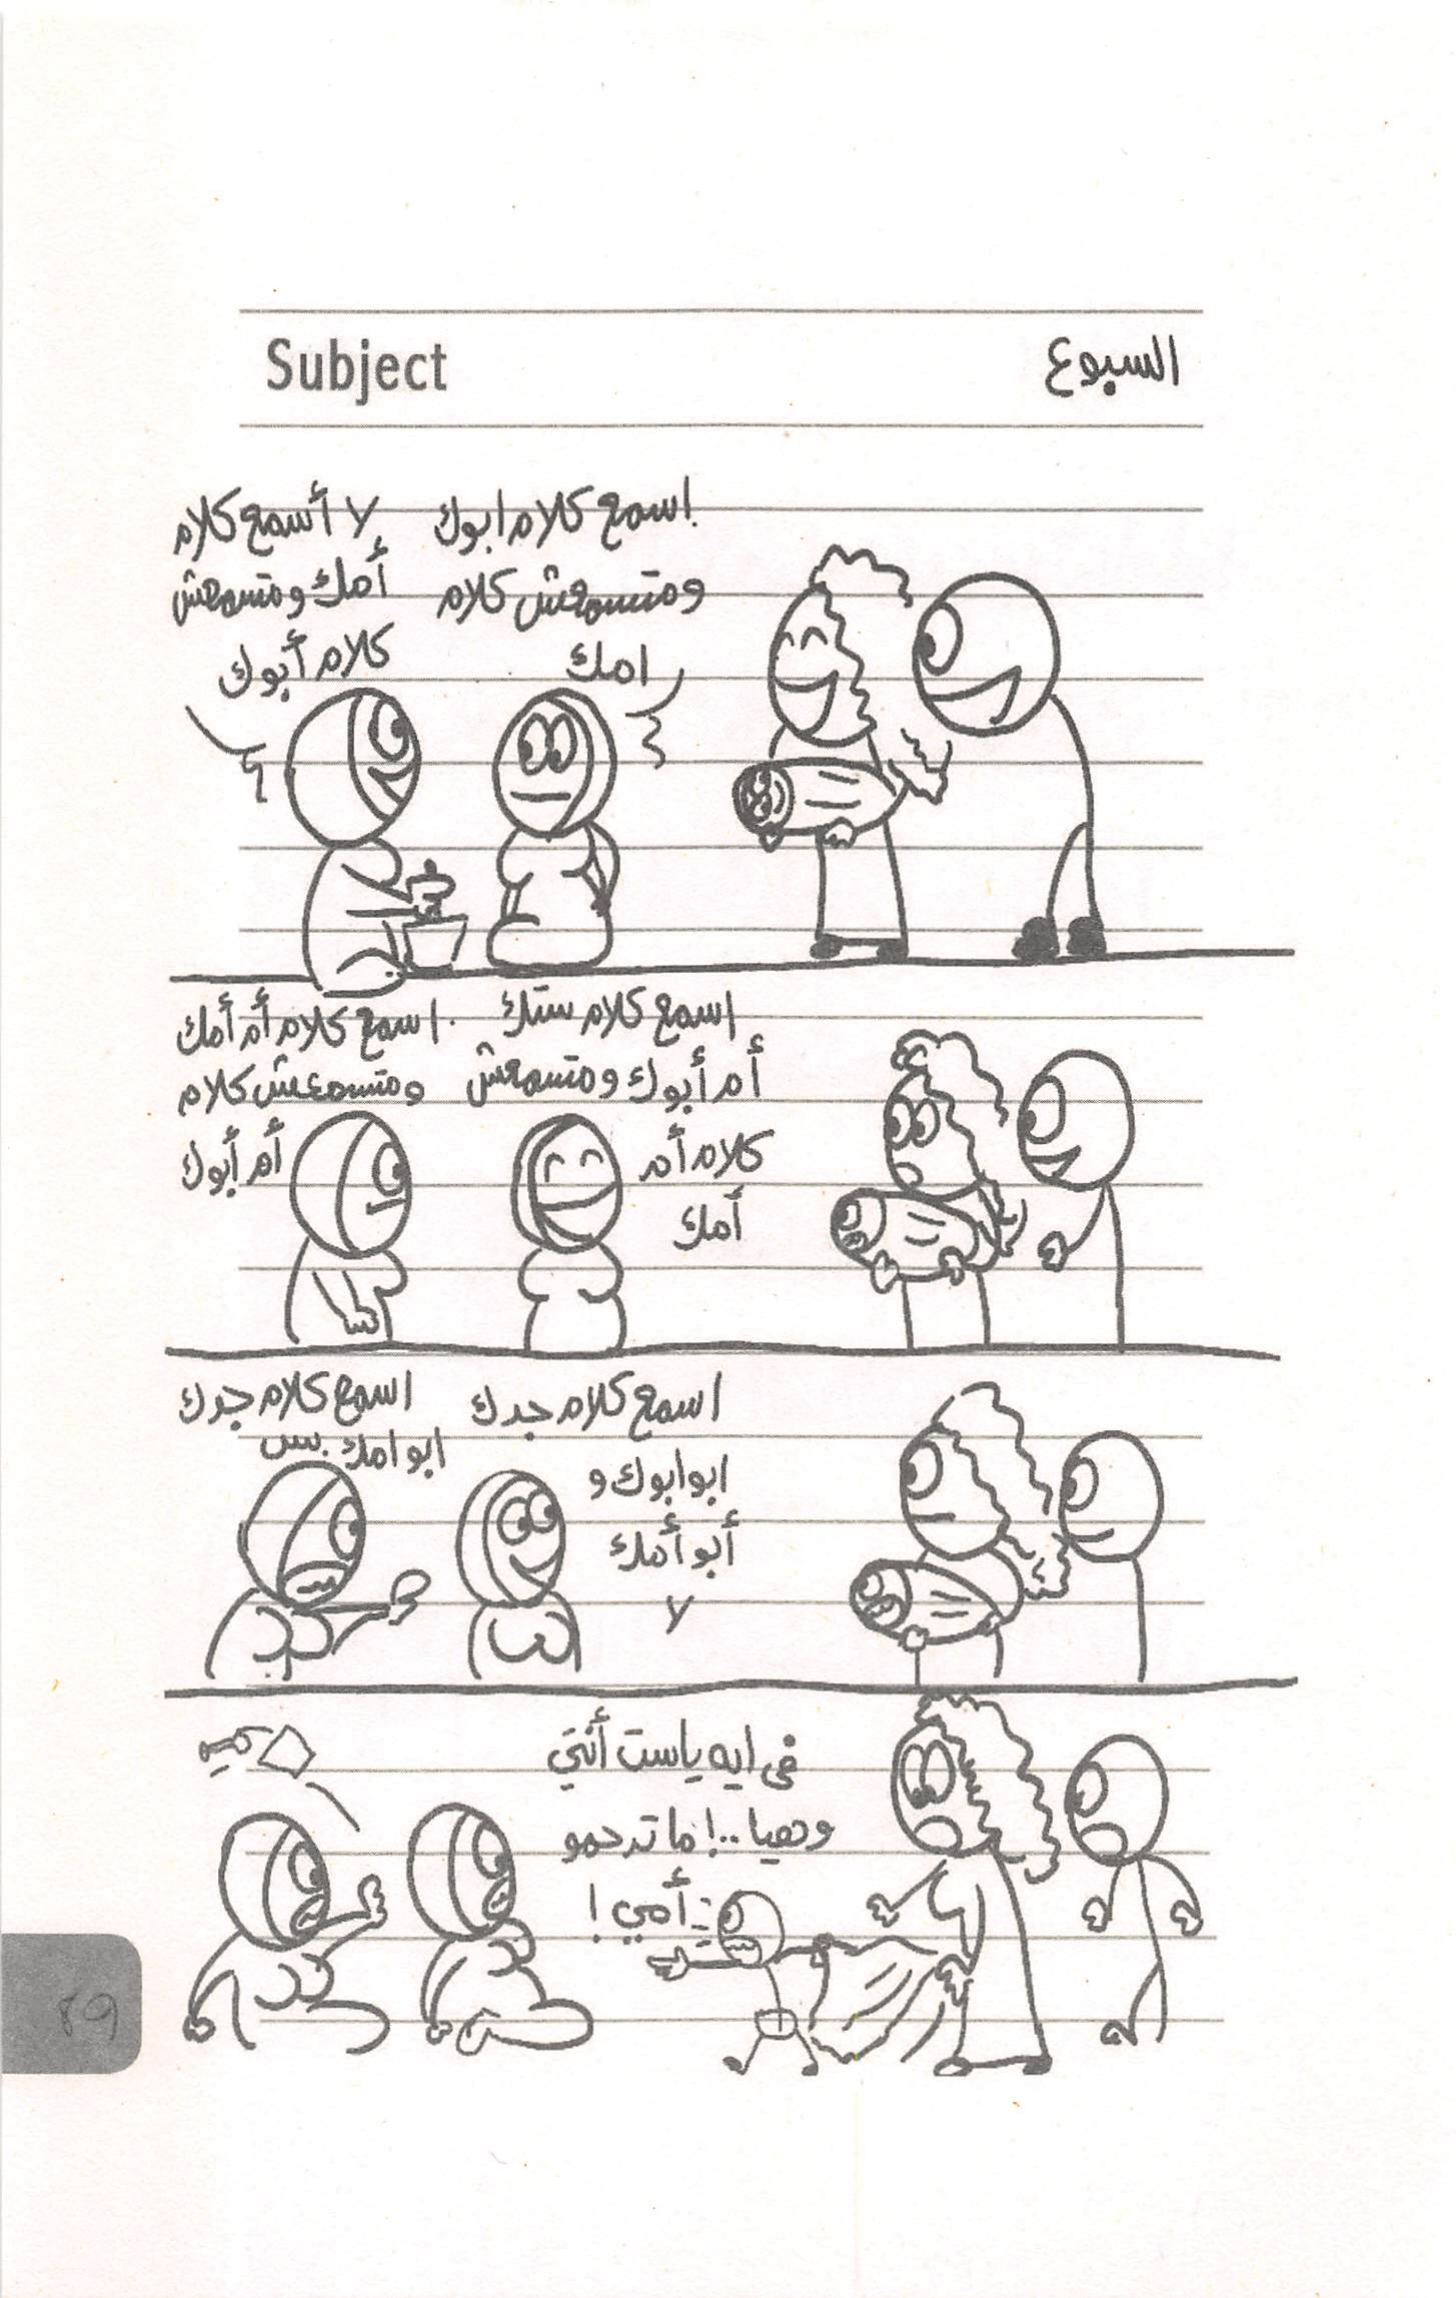 Subject
السبوع
اسمع كلام ابوك
ومتسمعش كلام
امك
لا أسمع كلام
أمك ومتسمعش
كلام أبوك
اسمع كلام ستك
أم أبوك ومتسمعش
كلام أم
أمك
اسمع كلام أم أمك
ومتسمعش كلام
أم أبوك
اسمع كلام جدك
ابو ابوك و
أبو أمك
لا
اسمع كلام جدك
ابو امك بس
فى ايه ياست أنتي
وهيا..! ما ترحمو
أمي!
٥٩